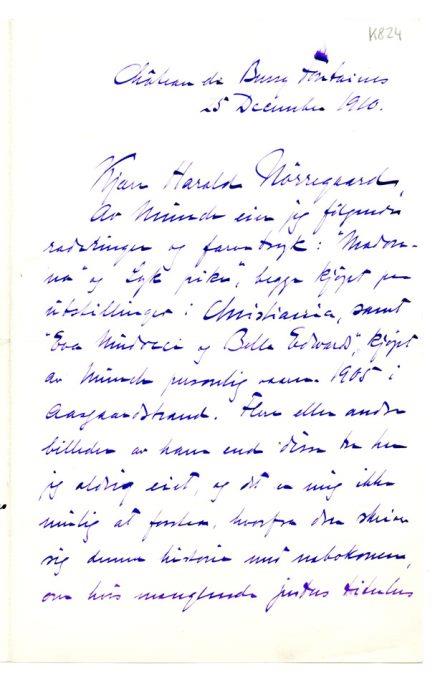 K824
Château de Bussy Fontaines
25 December 1910.
Kjære Harald Nörregaard,
Av Munch eier jeg følgende
raderinger og farvetryk: "Madon-
na" og "Syk pike", begge kjöpt paa
utstillinger i Christiania, samt
"Eva Mudocci og Bella Edwards", kjöpt
av Munch personlig vaaren 1905 i
Aasgaardstrand. Flere eller andre
billeder av ham end disse tre har
jeg aldrig eiet, og det er mig ikke
mulig at forstaa, hvorfra den skriver
sig denne historie med nabokonen,
om hvis manglende justus titulus